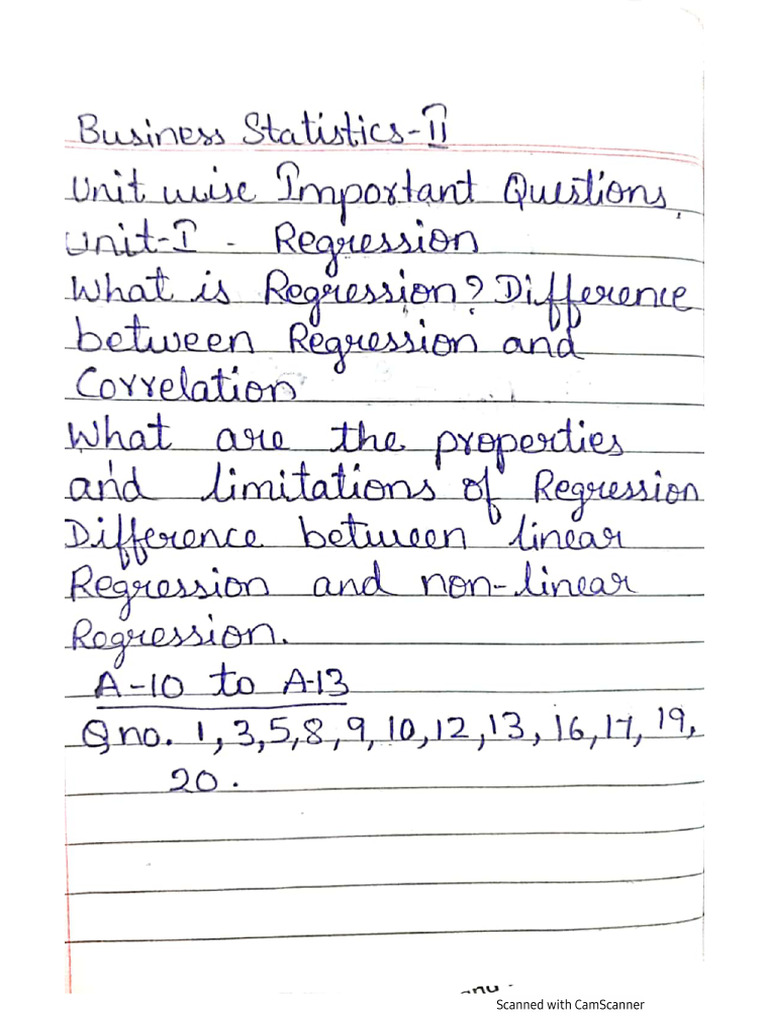 Business Statistics-II
Unit wise Important Questions
Unit-I - Regression
What is Regression? Difference
between Regression and
Correlation
What are the properties
and limitations of Regression
Difference between linear
Regression and non-linear
Regression.
A-10 to A-13
Q no. 1, 3, 5, 8, 9, 10, 12, 13, 16, 17, 19,
20.
Scanned with CamScanner